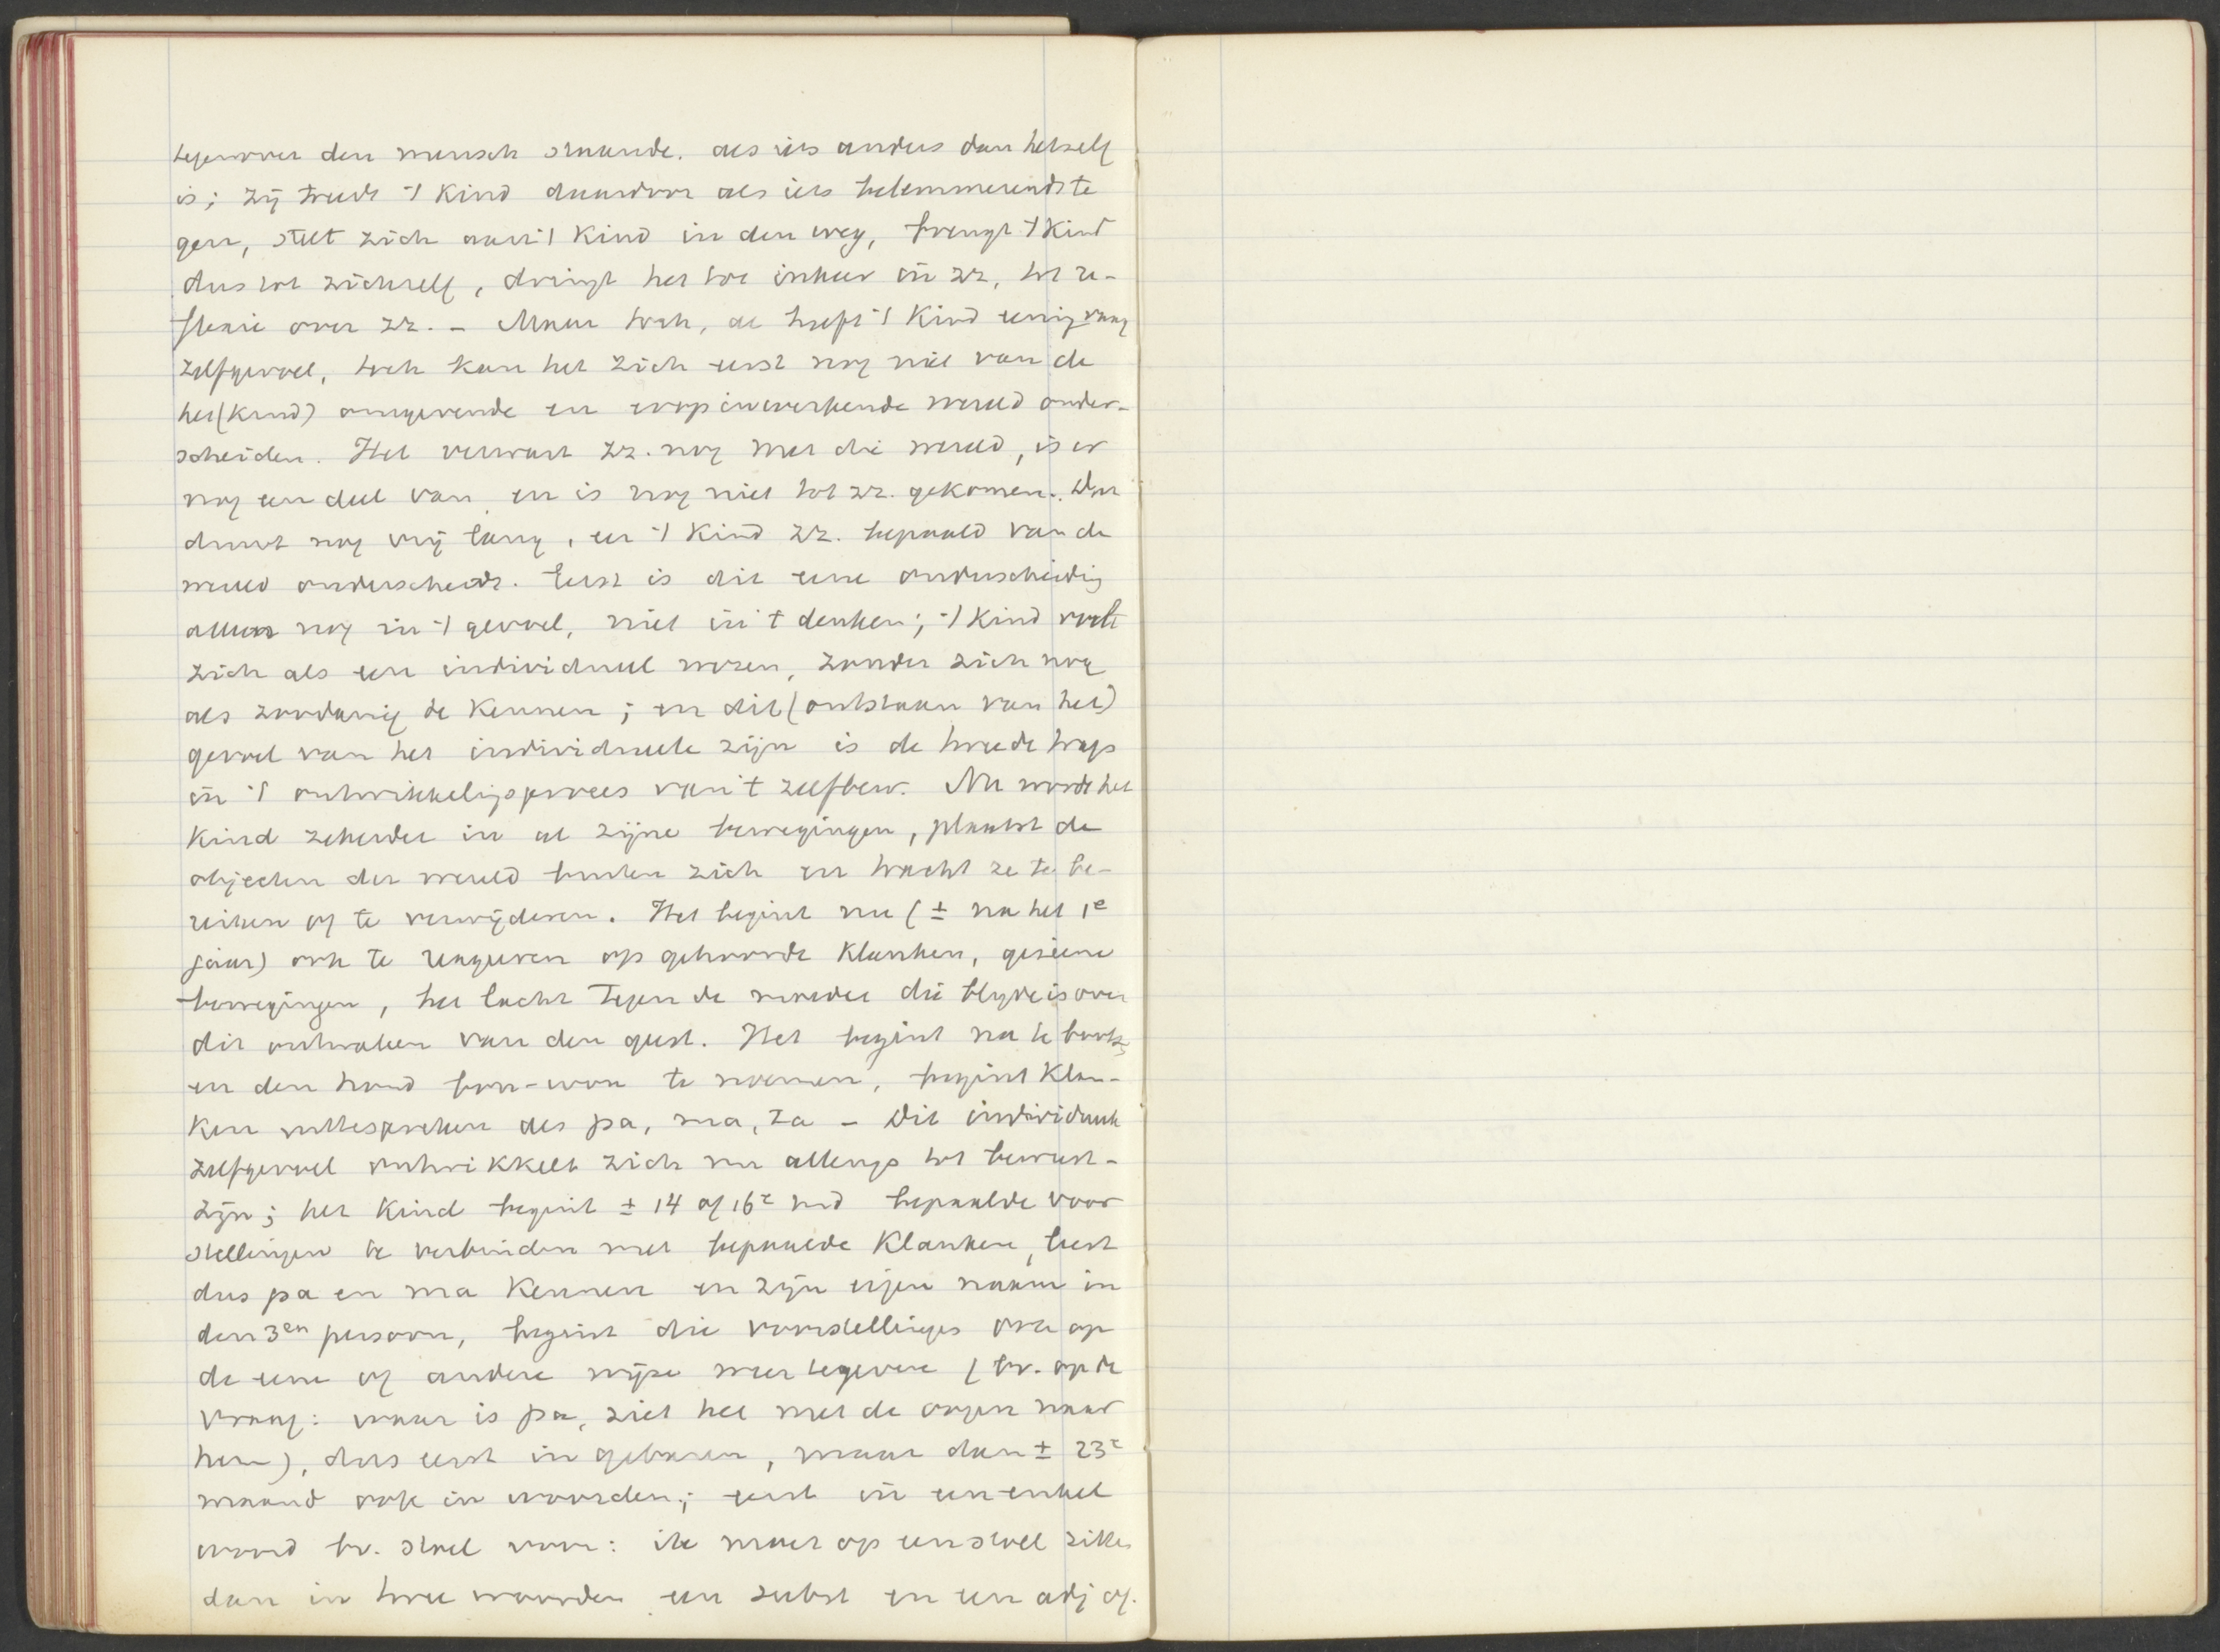 tegenover den mensch staande. als iets anders dan hetzelf
is; zij treedt 't kind daardoor als iets belemmerends te
gen, stelt zich aan 't kind in den weg, brengt 't kind
dus tot zichzelf, dringt het tot inkeer in zz, tot re-
flexie over zz. – Maar toch, al heeft 't kind eenig vaag
zelfgevoel, toch kan het zich eerst nog niet van de
het (kind) omgevende en erop inwerkende wereld onder-
scheiden. Het verwart zz. nog met die wereld, is er
nog een deel van en is nog niet tot zz. gekomen. Dan
duurt nog vrij lang, eer 't kind zz. bepaald van de
wereld onderscheidt. Eerst is dit eene onderscheidig
alleen nog in 't gevoel, niet in 't denken; 't kind voelt
zich als een individueel wezen, zonder zich nog
als zoodanig te kennen; en dit (ontstaan van het)
gevoel van het individueele zijn is de tweede trap
in 't ontwikkeligsproces van 't zelfbew. Nu wordt het
kind zekerder in al zijne bewegingen, plaatst de
objecten der wereld buiten zich en tracht ze te be-
reiken of te verwijderen. Het begint nu (± na het 1e
jaar) ook te reageeren op gehoorde klanken, geziene
bewegingen, het lacht tegen de moeder die blijde is over
dit ontwaken van den geest. Het begint na te boots
en den hond bou-wou te noemen, begint klan-
ken uittespreken als pa, ma, ta – Dit individueele
zelfgevoel ontwikkelt zich nu allengs tot bewust-
zijn; het kind begint ± 14 of 16e md bepaalde voor
stellingen te verbinden met bepaalde klanken, leert
dus pa en ma kennen en zijn eigen naam in
den 3en persoon, begint die voorstellingen ook op
de eene of andere wijze weertegeven (bv. op de
vraag: waar is pa, ziet het met de oogen naar
hem), dus eerst in gebaren, maar dan ± 23e
maand ook in woorden; eerst in een enkel
woord bv. stoel voor: ik moet op een stoel zitten
dan in twee woorden een subst en een adj of.